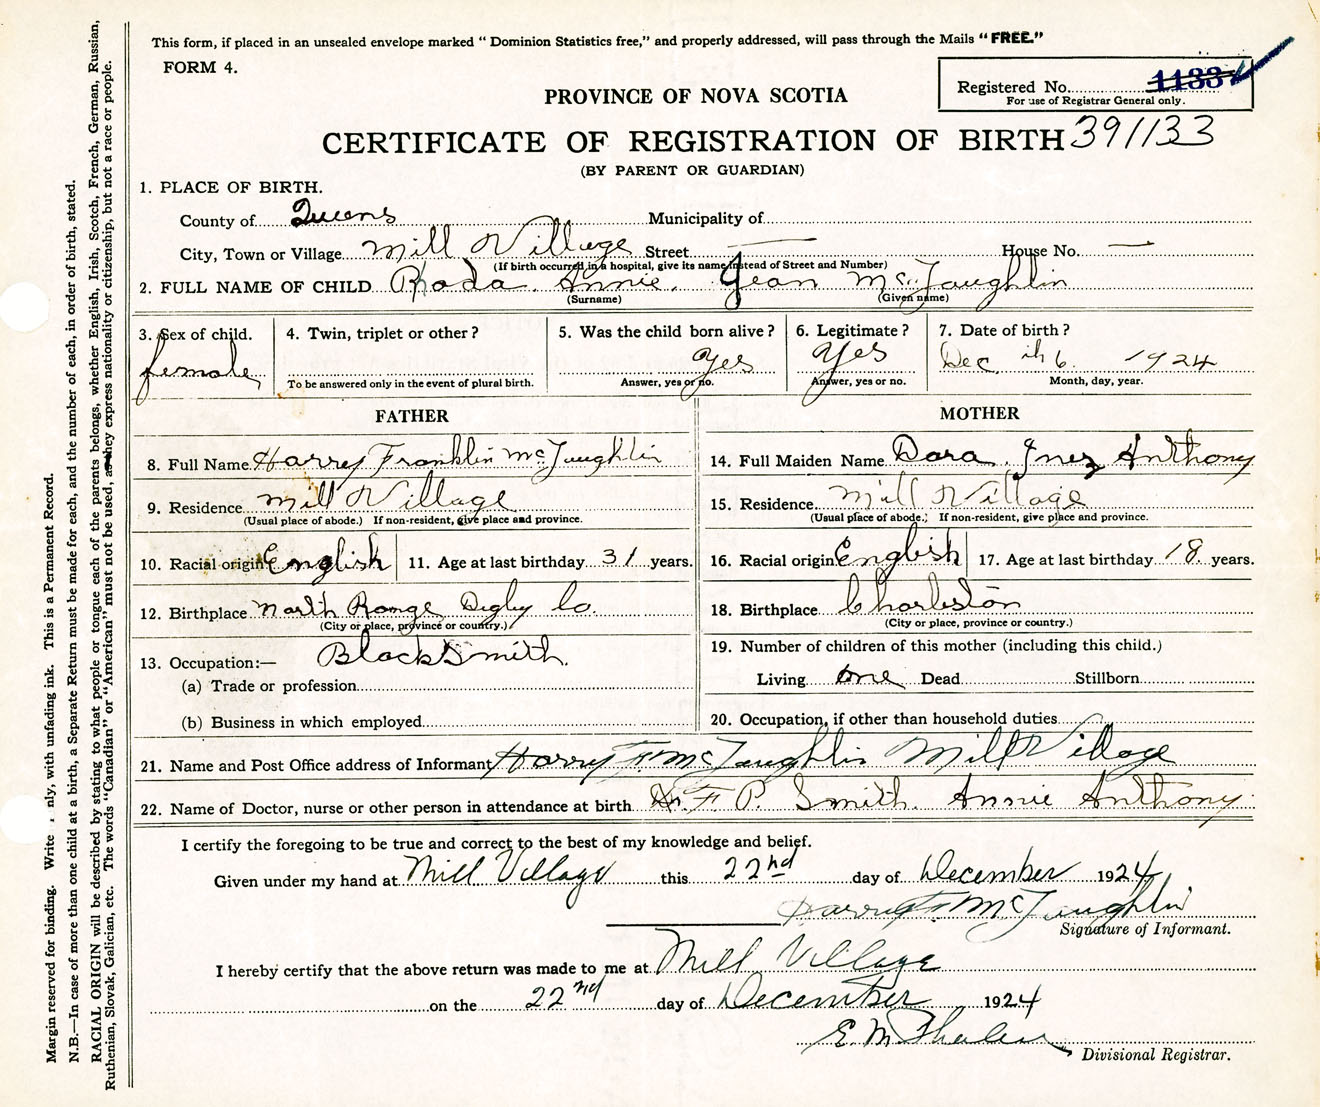 This form, if placed in an unsealed envelope marked " Dominion Statistics free," and properly addressed, will pass through the Mails "FREE."
FORM 4.
Registered No. 1133
For use of Registrar General only.
PROVINCE OF NOVA SCOTIA
CERTIFICATE OF REGISTRATION OF BIRTH 391133
(BY PARENT OR GUARDIAN)
1. PLACE OF BIRTH.
County of Queens Municipality of
City, Town or Village Mill Village Street — House No. —
(If birth occurred in a hospital, give its name instead of Street and Number)
2. FULL NAME OF CHILD Rhoda Annie Jean McLaughlin
(Surname) (Given name)
3. Sex of child. female
4. Twin, triplet or other?
To be answered only in the event of plural birth.
5. Was the child born alive? Yes
Answer, yes or no.
6. Legitimate? Yes
Answer, yes or no.
7. Date of birth?
Dec 6th 1924
Month, day, year.
FATHER
8. Full Name Harry Franklin McLaughlin
9. Residence Mill Village
(Usual place of abode.) If non-resident, give place and province.
10. Racial origin English 11. Age at last birthday 31 years.
12. Birthplace North Range Digby Co.
(City or place, province or country.)
13. Occupation:— BlackSmith
(a) Trade or profession
(b) Business in which employed
MOTHER
14. Full Maiden Name Dora Inez Anthony
15. Residence Mill Village
(Usual place of abode.) If non-resident, give place and province.
16. Racial origin English 17. Age at last birthday 18 years.
18. Birthplace Charleston
(City or place, province or country.)
19. Number of children of this mother (including this child.)
Living one Dead Stillborn
20. Occupation, if other than household duties
21. Name and Post Office address of Informant Harry F. McLaughlin Mill Village
22. Name of Doctor, nurse or other person in attendance at birth Dr. F. P. Smith. Annie Anthony
I certify the foregoing to be true and correct to the best of my knowledge and belief.
Given under my hand at Mill Village this 22nd day of December 1924
Harry F. McLaughlin
Signature of Informant.
I hereby certify that the above return was made to me at Mill Village
on the 22nd day of December 1924
E M
Divisional Registrar.
Margin reserved for binding. Write nly, with unfading ink. This is a Permanent Record.
N.B.—In case of more than one child at a birth, a Separate Return must be made for each, and the number of each, in order of birth, stated.
RACIAL ORIGIN will be described by stating to what people or tongue each of the parents belongs, whether English, Irish, Scotch, French, German, Russian,
Ruthenian, Slovak, Galician, etc. The words "Canadian" or "American" must not be used, as they express nationality or citizenship, but not a race or people.